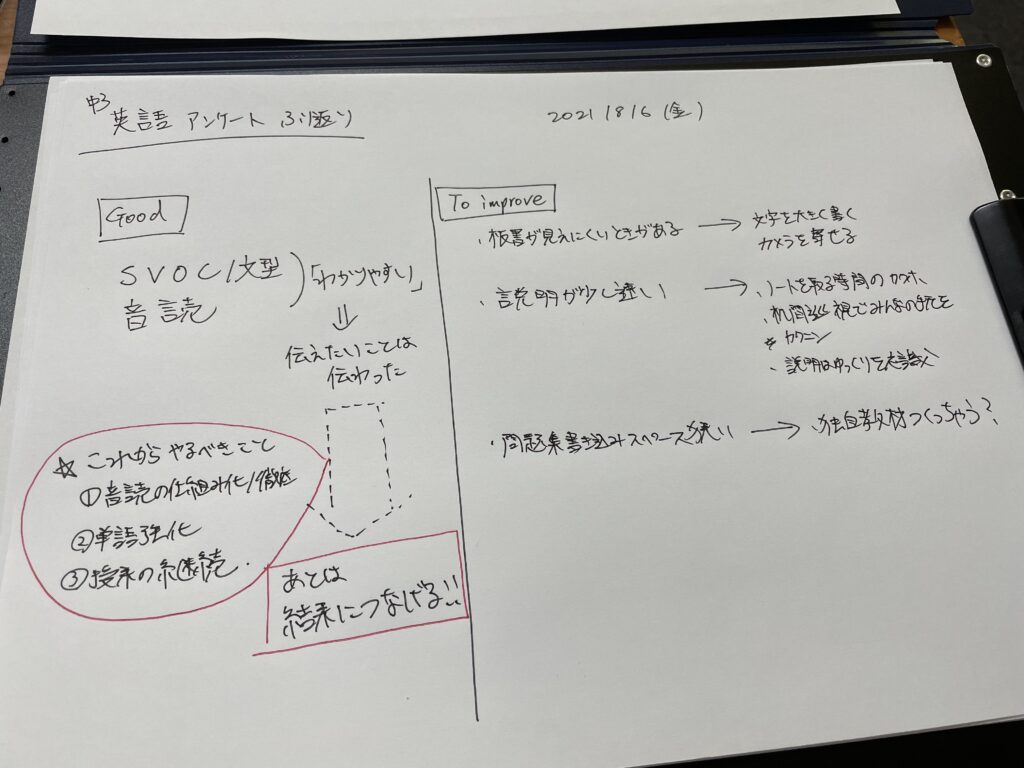 中3
英語 アンケート ふり返り
2021/8/6(金)
Good
SVOC/文型
音読
「わかりやすい」
⇓
伝えたいことは
伝わった
☆ これから やるべきこと
①音読の仕組み化/徹底
②単語強化
③授業の継続.
あとは
結果につなげる!!
To improve
・板書が見えにくいときがある → 文字を大きく書く
カメラを寄せる
・説明が少し速い → ・ノートを取る時間の
・机間巡視でみんなの手元を
カクニン
・説明はゆっくりを
・問題集書き込みスペース狭い → ・独自教材つくっちゃう?